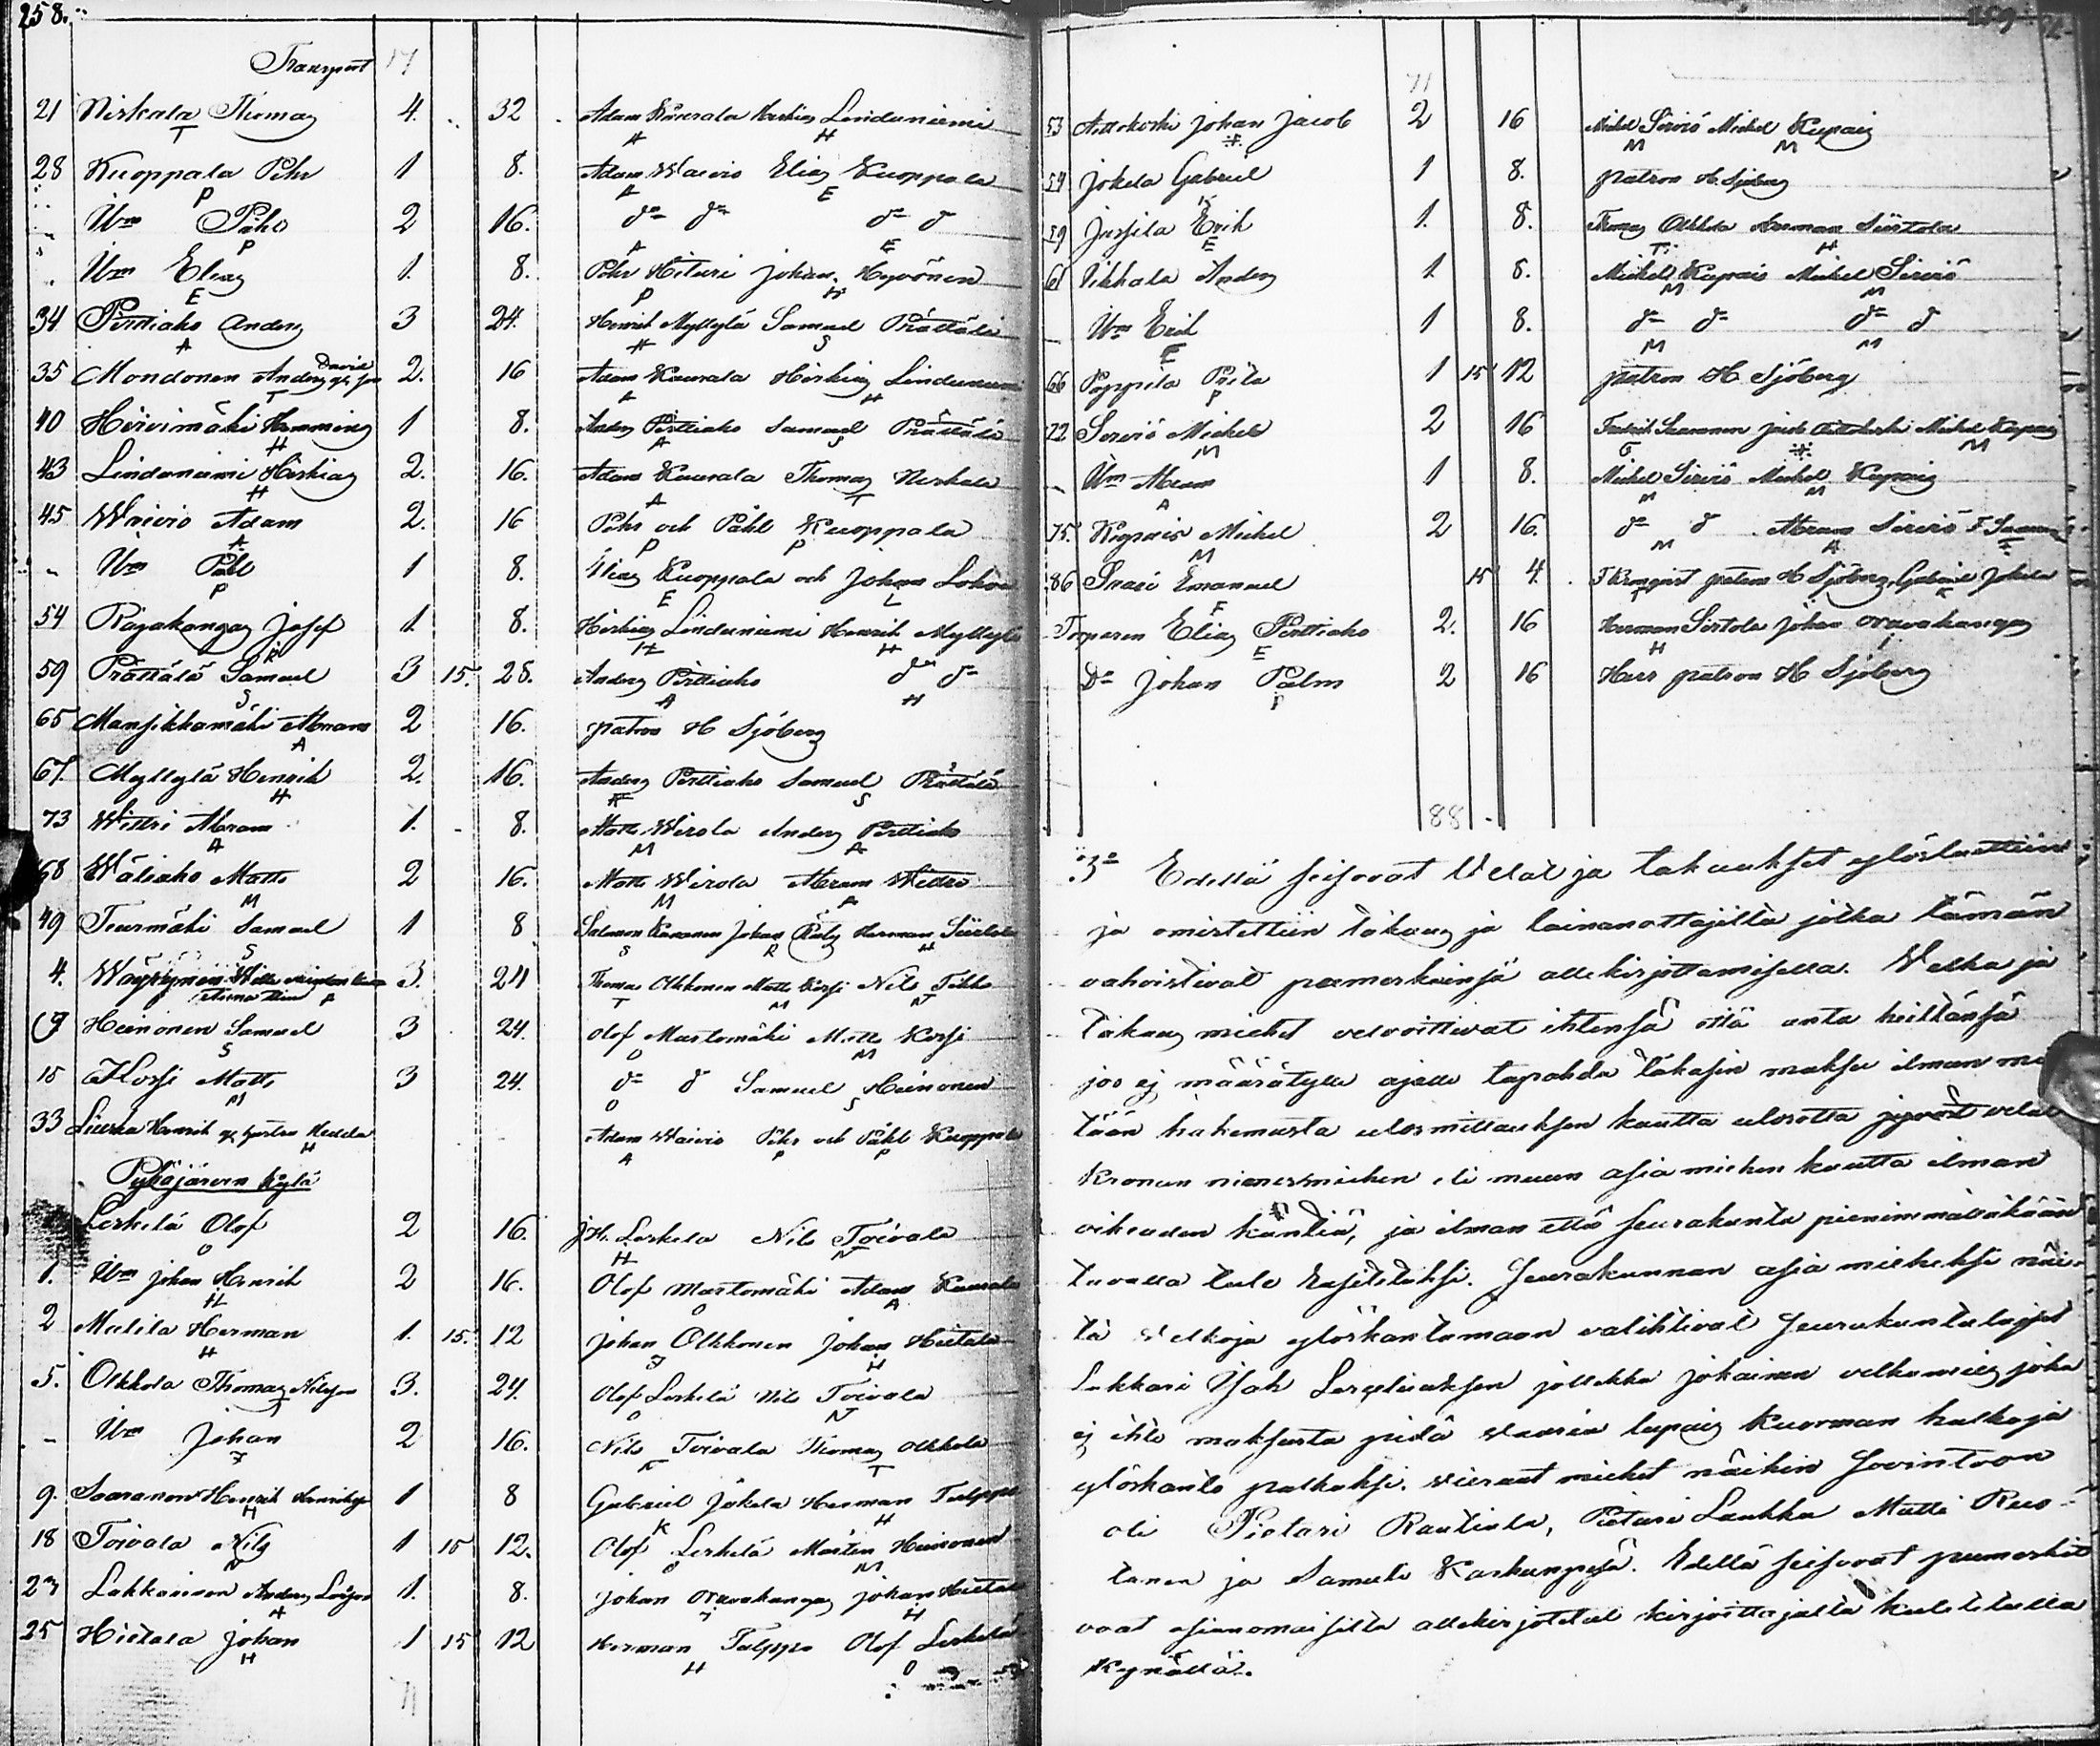 258.
Transport 17
21 Niskala Thomas 4. 32 Adam Kaurala Hiskias Linduniemi
T A H
28 Kuoppala Pehr 1 8. Adam Waivio Elias Kuoppala
P A E
" Um Påhl 2 16. do do do do
P A E
" Um Elias 1. 8. Pehr Hituri Johan Hyvönen
E P H
34 Perttiaho Anders 3 24. Henrik Myllylä Samuel Prättälä
A H S
35 Mondonen Anders David 2. 16 Adam Kaurala Hiskias Linduniemi
T A H
40 Hirvimäki Hemming 1 8. Anders Perttiaho Samuel Prättälä
H A S
43 Linduniemi Hiskias 2. 16. Adam Kaurala Thomas Niskala
H A T
45 Waivio Adam 2. 16 Pehr och Påhl Kuoppala
A P P
" Um Påhl 1 8. Elias Kuoppala och Johan
P E L
54 Rajakangas Josef 1. 8. Hiskias Linduniemi Henrik Myllylä
R H H
59 Prättälä Samuel 3 15. 28. Anders Perttiaho do do
S A H
65 Mansikkamäki Abram 2 16. patron H Sjöberg
A
67. Myllylä Henrik 2. 16. Anders Perttiaho Samuel Prättälä
H A S
73 Wittri Abram 1. 8. Matts Wirola Anders Perttiaho
A M A
68 Wäliaho Matts 2 16. Matts Wirola Abram Wittri
M M A
49 Teurmäki Samuel 1 8 Salomon Johan Herman Siirtola
S S R H
4. Wäyrynen 3. 24 Thomas Olkkonen Matts Korsi Nils
T M N
Heinonen Samuel 3 24. Olof Mustomäki Matts Korsi
S O M
15 Korsi Matts 3 24. do do Samuel Heinonen
M O S
33 Henrik Hedda Adam Waivio Pehr och Påhl Kuoppala
H A P P
Pyhäjärven Kylä
Leskelä Olof 2 16. J H. Leskelä Nils Toivala
O H N
1. Um Johan Henrik 2 16. Olof Mustomäki Adam Kaurala
H O A
2 Matila Herman 1. 15. 12 Johan Olkkonen Johan Hietala
H J H
5. Olkkola Thomas Nilsson 3. 24. Olof Leskelä Nils Toivala
T O N
" Um Johan 2 16. Nils Toivala Thomas Olkkola
J N T
9. Saaranen Henrik 1 8 Gabriel Jokela Herman Tulppo
H K H
18 Toivala Nils 1 15 12. Olof Leskelä Mårten Heinonen
N O M
23 Lakkainen Anders 1. 8. Johan Orawakangas Johan Hietala
A J H
25 Hietala Johan 1 15 12 Herman Tulppo Olof Leskelä
H H O
71
259
71
53 Aittokoski Johan Jacob 2 16 Mickel Sirviö Mickel Kupais
M M
54 Jokela Gabriel 1 8. patron H. Sjöberg
K
59 Jussila Erik 1. 8. Thomas Olkkola Herman Siirtola
E T H
61 Vikkala Anders 1. 8. Mickel Kupais Mickel Sirviö
M M
Um Erik 1 8. do do do do
E M M
66 Poppila Pella 1 15 12 patron H Sjöberg
P
72 Sirviö Mickel 2 16 Fredrik Saaranen Aittokoski Mickel Kupais
M M
Um Abram 1 8. Mickel Sirviö Mickel Kupais
A M M
75. Kupais Mickel 2 16. do do Abram Sirviö
M M A
86 Snari Emanuel 15 4. patron H Sjöberg, Gabriel Jokela
E T K
Torparen Elias Perttiaho 2. 16 Herman Siirtola Johan Orawakangas
E H J
Do Johan Palm 2 16 Herr patron H Sjöberg
P
88
3o Edellä seisovat Velat ja takaukset ylösluettiin
ja omistettiin takaus ja lainanottajilta jotka tämän
vahvistivat puumerkeinsä allekirjottamisella. Velka ja
takaus miehet velvoittivat ihtensä että anta heiltänsä
jos ej määrätyllä ajalla tapahdu takasin maksu ilman
tään hakemusta ulosmittauksen kautta ulosotta velat
Kronun nimismiehen eli muun asia miehen kautta ilman
oikeuden käntiä, ja ilman että seurakunta pienimmälläkään
tavalla tule rasitetuksi. Seurakunnan asia mieheksi näi-
tä Velkoja ylöskantamaan valihtivat Seurakuntalaiset
Lukkari Isak jollekka jokainen velkamies joka
ej ihte maksusta pidä vaaria lupais Kuorman halkoja
ylöskanto palkaksi. Vieraat miehet näihin Sovintoon
oli Pietari Rautiala, Pietari Laukka Matti Ruo-
tanen ja Samuli Karhunpesä. Edellä seisovat puumerkit
ovat asianomaisilta allekirjotetut kirjoittajalta kuletetulla
Kynällä.